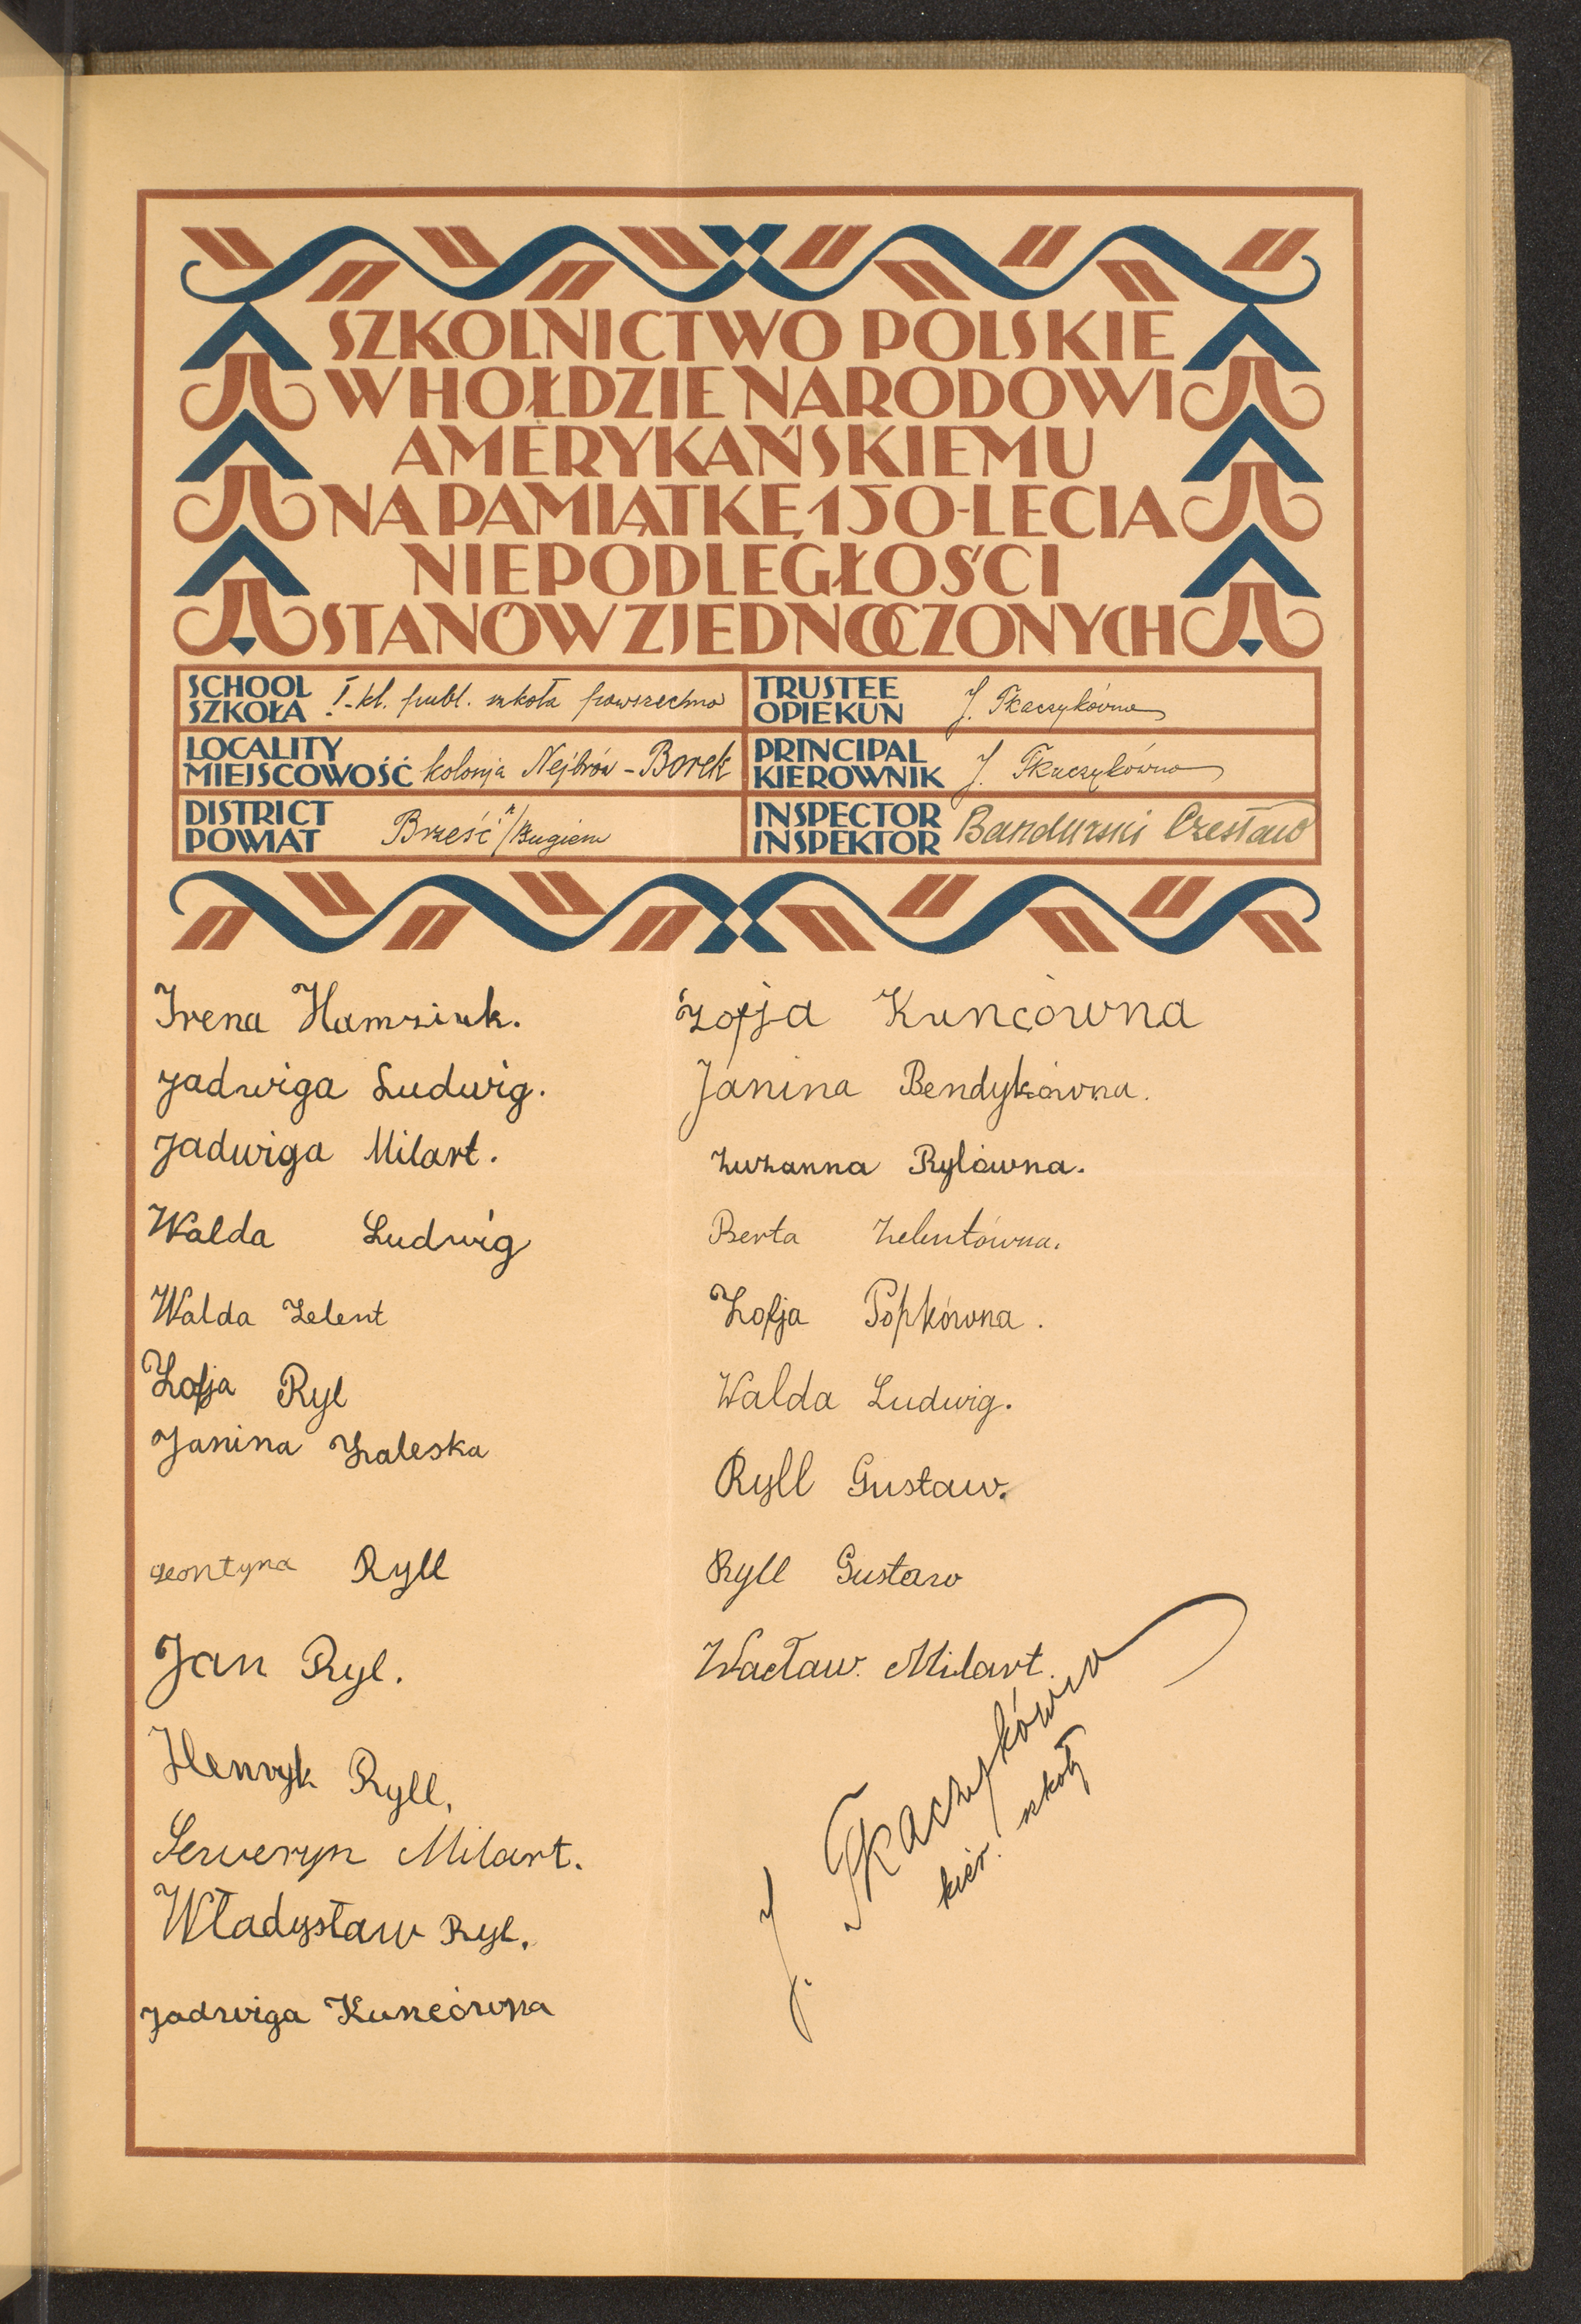 SZKOLNICTWO POLSKIE
W HOŁDZIE NARODOWI
AMERYKAŃSKIEMU
NA PAMIĄTKĘ 150-LECIA
NIEPODLEGŁOŚCI
STANÓW ZJEDNOCZONYCH
SCHOOL
SZKOŁA I-kl. publ. szkoła powszechna
TRUSTEE
OPIEKUN J. Tkaczykówna
LOCALITY
MIEJSCOWOŚĆ kolonja Nejbrów - Borek
PRINCIPAL
KIEROWNIK J. Tkaczykówna
DISTRICT
POWIAT Brześć n/Bugiem
INSPECTOR
INSPEKTOR Bandurski Czesław
Irena Hamziuk.
Jadwiga Ludwig.
Jadwiga Milart.
Walda Ludwig
Walda Zelent
Zofja Ryl
Janina Zaleska
Leontyna Ryll
Jan Ryl.
Henryk Ryll.
Serweryn Milart.
Władysław Ryl.
Jadwiga Kuncówna
Zofja Kuncówna
Janina Bendykówna.
Zuzanna Rylówna.
Berta Zelentówna.
Zofja Popkówna.
Walda Ludwig.
Ryll Gustaw.
Ryll Gustaw
Wacław. Milart.
J. Tkaczykówna
kier. szkoły